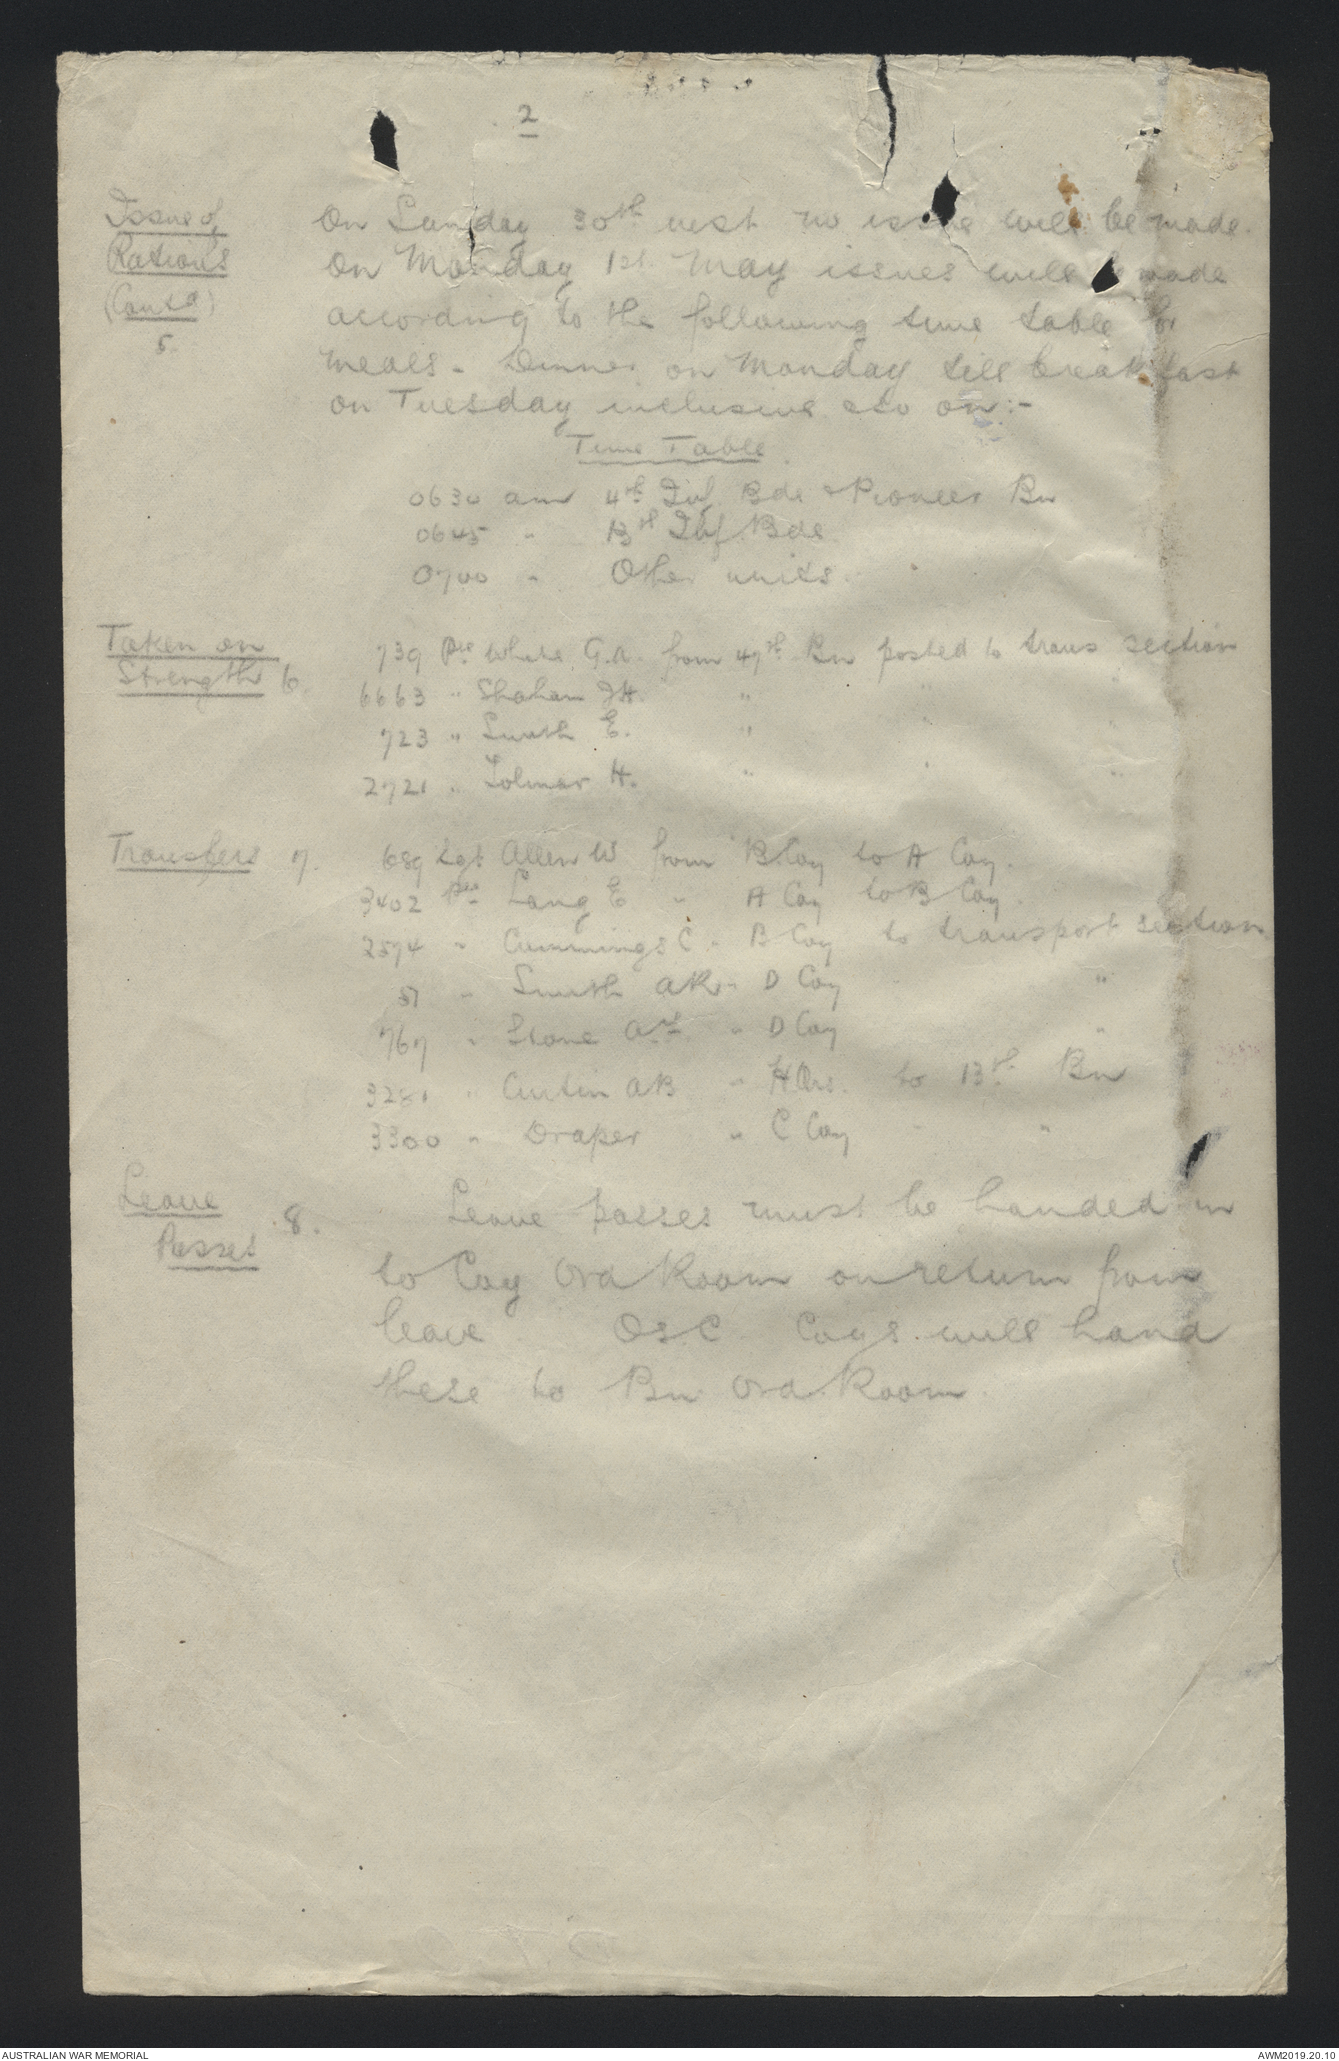 2
Issue of
Rations
(Contd)
5.
On Sunday 30th inst no issue will be made.
On Monday 1st May issues will be made
according to the following time table for
meals - Dinner on Monday till breakfast
on Tuesday inclusive & so on:-
Time Table
0630 am 4th Inf. Bde & Pioneer Bn
0645 " 13th Inf Bde
0700 " Other units.
Taken on
Strength 6.
739 Pte White G.A. from 47th Bn posted to trans section
6663 " Shaham J H. " " "
723 " Smith E. " " "
2721 " Tolmar H. " " "
Transfers 7.
689 Sgt Allen W from B Coy to A Coy.
3402 Pte Lang E " A Coy to B Coy.
2574 " Cummings C " B Coy to transport section
51 " Smith A R " D Coy "
767 " Stone " D Coy "
3281 " Curtin A B " HQrs. to 13th Bn
3300 " Draper " C Coy " "
Leave
Passes 8.
Leave passes must be handed in
to Coy Ord Room on return from
leave. OsC Coys. will hand
these to Bn Ord. Room.
AUSTRALIAN WAR MEMORIAL
AWM2019.20.10